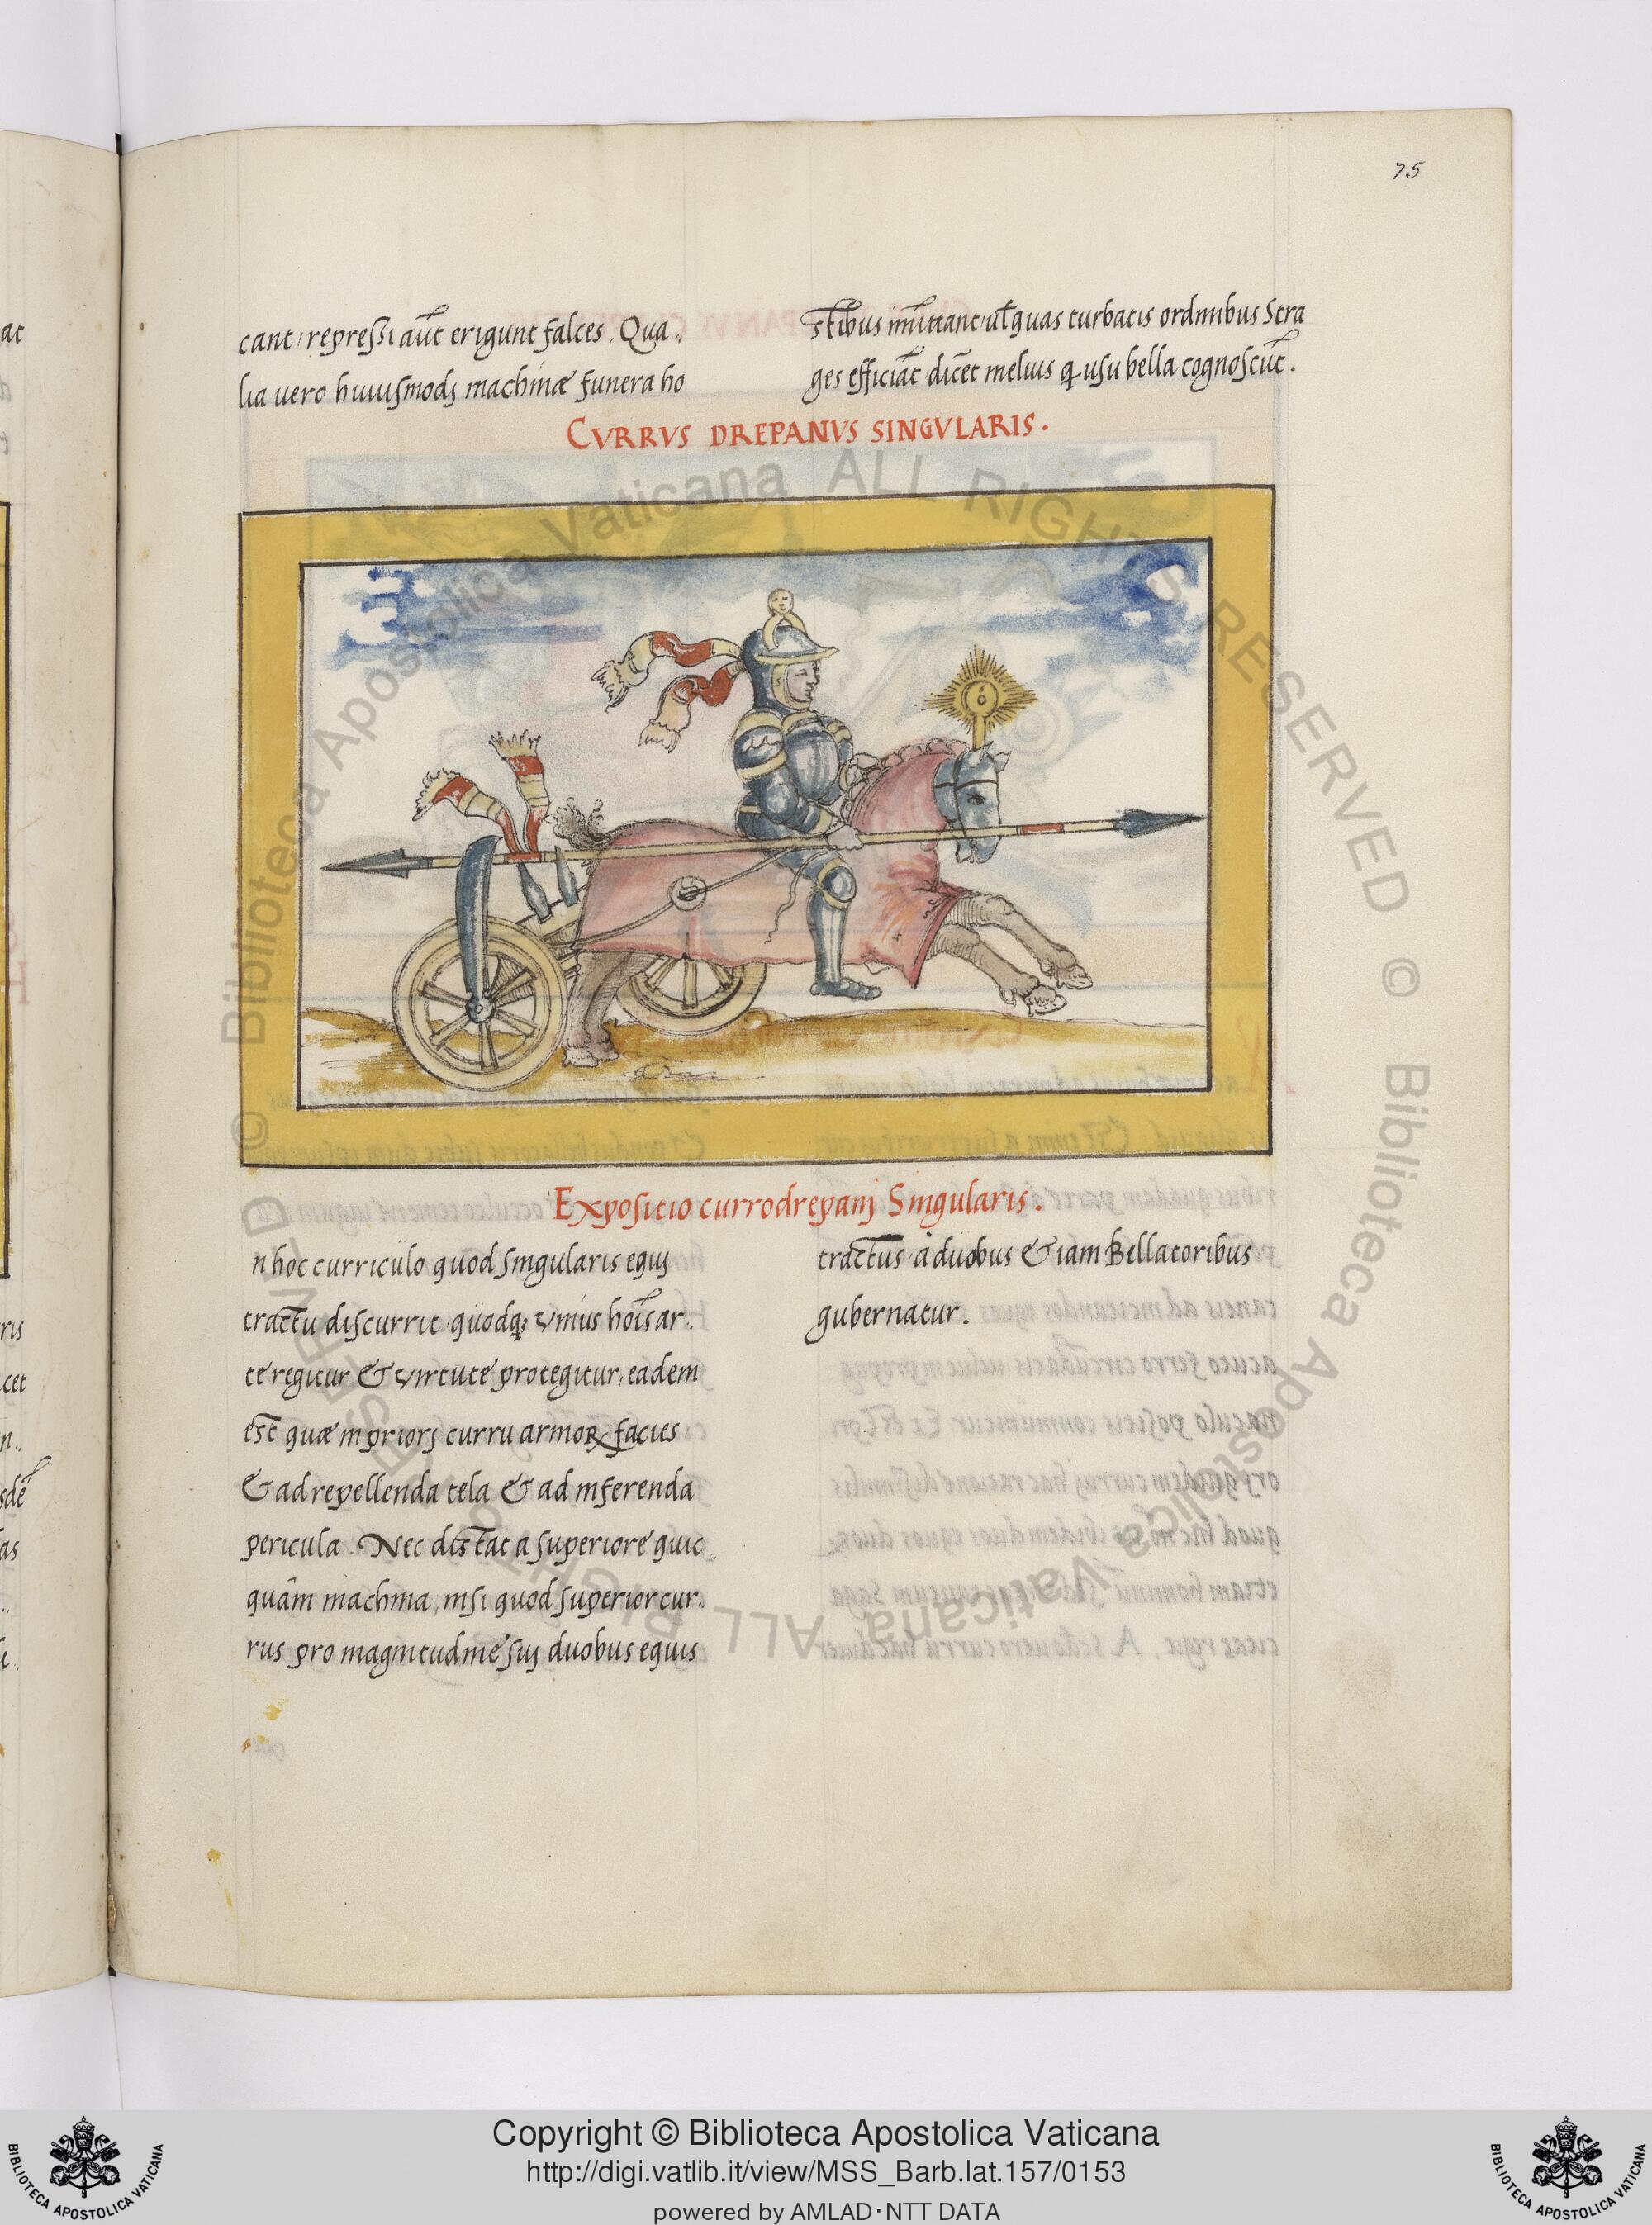 75
cant, repressi aūt erigunt falces. Qua..
lia uero huiusmodj machinæ funera ho
stibus im̄ittant, ul̄ quas turbatis ordinibus stra
ges efficiāt dicēt melius q̄ usu bella cognoscūt.
CVRRVS DREPANVS SINGVLARIS.
Expositio currodrepanj Singularis.
n hoc curriculo quod singularis equj
tractu discurrit, quodq; vnius hoīs ar.
te regitur & virtute protegitur, eadem
est quæ in priorj curru armoꝝ facies
& ad repellenda tela & ad inferenda
pericula. Nec distat a superiore quic..
quàm machina, nisi quod superior cur.
rus pro magnitudine suj duobus equis
tractus à duobus & iam Bellatoribus
gubernatur.
Copyright © Biblioteca Apostolica Vaticana
http://digi.vatlib.it/view/MSS_Barb.lat.157/0153
powered by AMLAD·NTT DATA